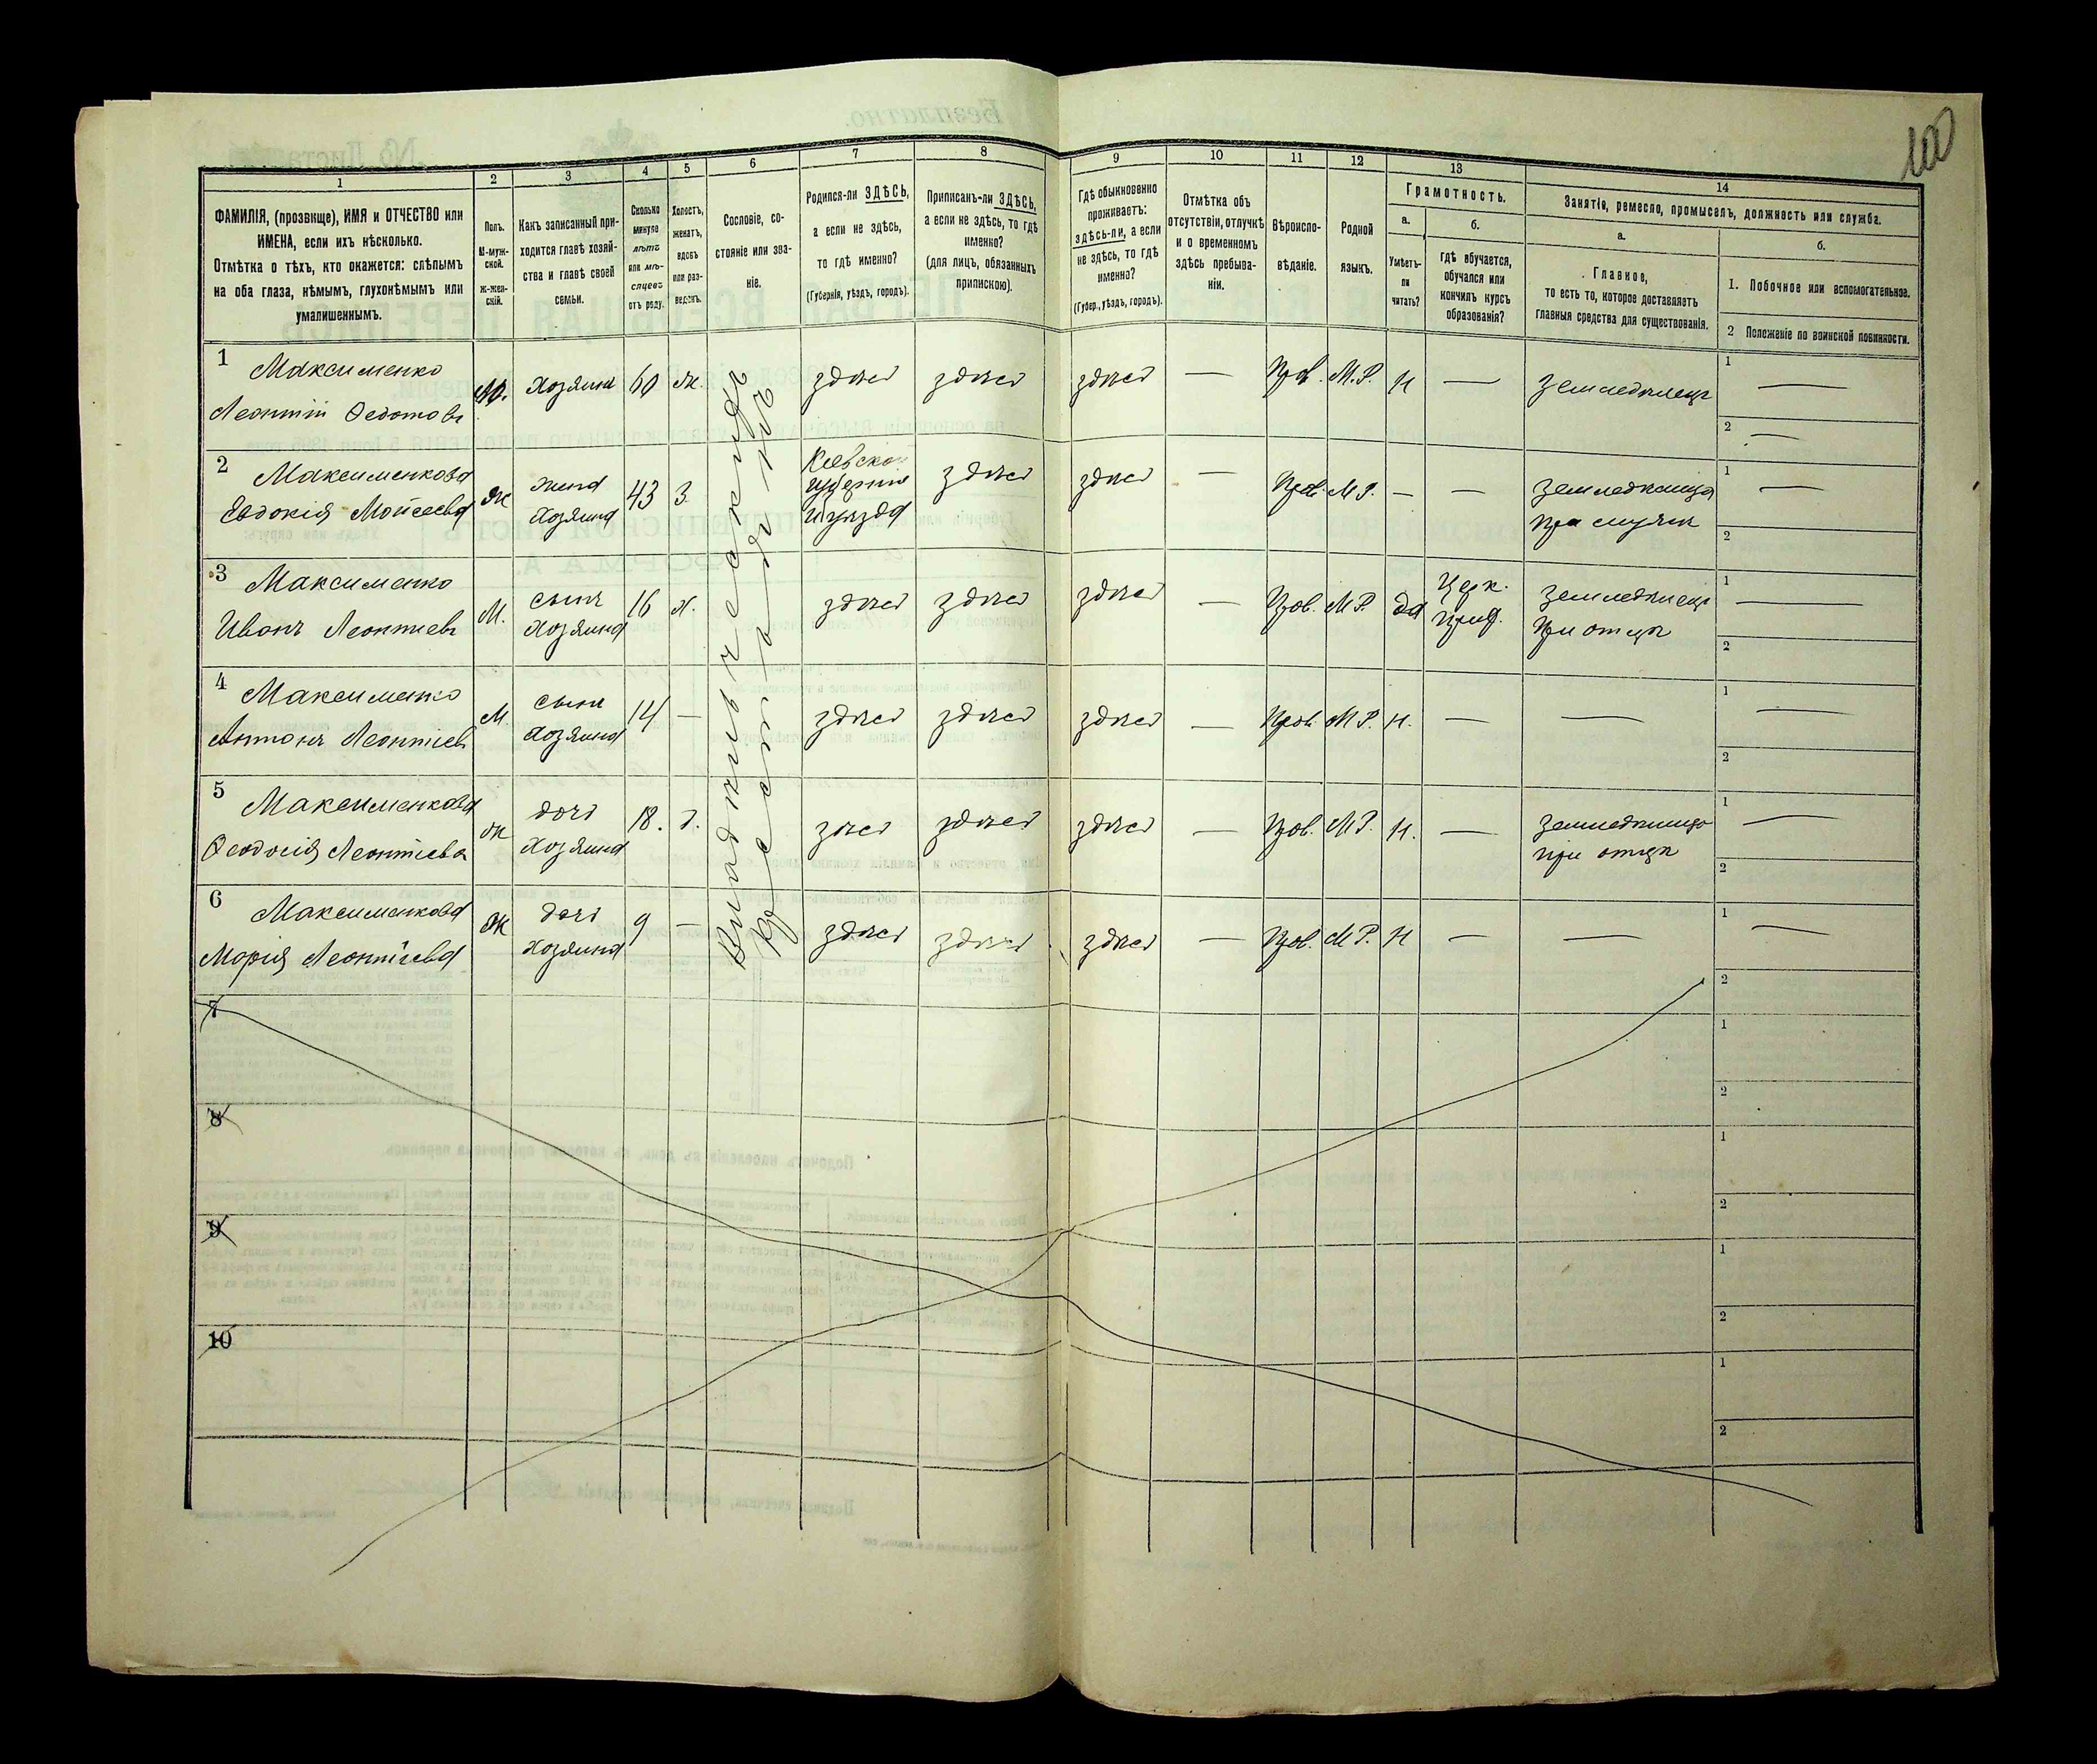 100
1
ФАМИЛІЯ, (прозвище), ИМЯ и ОТЧЕСТВО или
ИМЕНА, если ихъ нѣсколько.
Отмѣтка о тѣхъ, кто окажется: слѣпымъ
на оба глаза, нѣмымъ, глухонѣмымъ или
умалишеннымъ.
2
Полъ.
М-муж-
ской.
Ж-жен-
скій.
3
Какъ записанный при-
ходится главѣ хозяй-
ства и главѣ своей
семьи.
4
Сколько
минуло
лѣтъ
или мѣ-
сяцевъ
отъ роду.
5
Холостъ,
женатъ,
вдовъ
или раз-
веденъ.
6
Сословіе, со-
стояніе или зва-
ніе.
7
Родился-ли ЗДѢСЬ,
а если не здѣсь,
то гдѣ именно?
(Губернія, уѣздъ, городъ).
8
Приписанъ-ли ЗДѢСЬ,
а если не здѣсь, то гдѣ
именно?
(для лицъ, обязанныхъ
припискою).
9
Гдѣ обыкновенно
проживаетъ:
здѣсь-ли, а если
не здѣсь, то гдѣ
именно?
(Губер., уѣздъ, городъ).
10
Отмѣтка объ
отсутствіи, отлучкѣ
и о временномъ
здѣсь пребыва-
ніи.
11
Вѣроиспо-
вѣданіе.
12
Родной
языкъ.
13
Грамотность.
а.
Умѣетъ-
ли
читать?
б.
гдѣ обучается,
обучался или
кончилъ курсъ
образованія?
14
Занятіе, ремесло, промыселъ, должность или служба.
а.
Главное,
то есть то, которое доставляетъ
главныя средства для существованія.
б.
1. Побочное или вспомогательное.
2 Положеніе по воинской повинности.
1 Максименко
Леонтій Федотовъ
М. Хозяинъ 60 ж. здѣсь здѣсь здѣсь — Прав. М.Р. н — земледѣлецъ
1 —
2 —
2 Максименкова
Евдокія Моисеева
ж жена
хозяина
43 з.
Кіевской
губерніи
и уѣзда
здѣсь здѣсь — Прав. М.Р. — —
земледѣлица
при мужѣ
1 —
2
3 Максименко
Иванъ Леонтіевъ
М. сынъ
хозяина
16 х. здѣсь здѣсь здѣсь — Прав. М.Р. да
Церк.
прих.
земледѣлецъ
при отцѣ
1 —
2
4 Максименко
Антонъ Леонтіевъ
М. сынъ
хозяина
14 — здѣсь здѣсь здѣсь — Прав. М.Р. н. — —
1 —
2
5 Максименкова
Феодосія Леонтіева
ж дочь
хозяина
18. д. здѣсь здѣсь здѣсь — Прав. М.Р. н. —
земледѣлица
при отцѣ
1 —
2
6 Максименкова
Марія Леонтіева
ж дочь
хозяина
9 — здѣсь здѣсь здѣсь — Прав. М.Р. н — —
1 —
2
Владѣльческихъ
крестьянъ
7
1
2
8
1
2
9
1
2
10
1
2